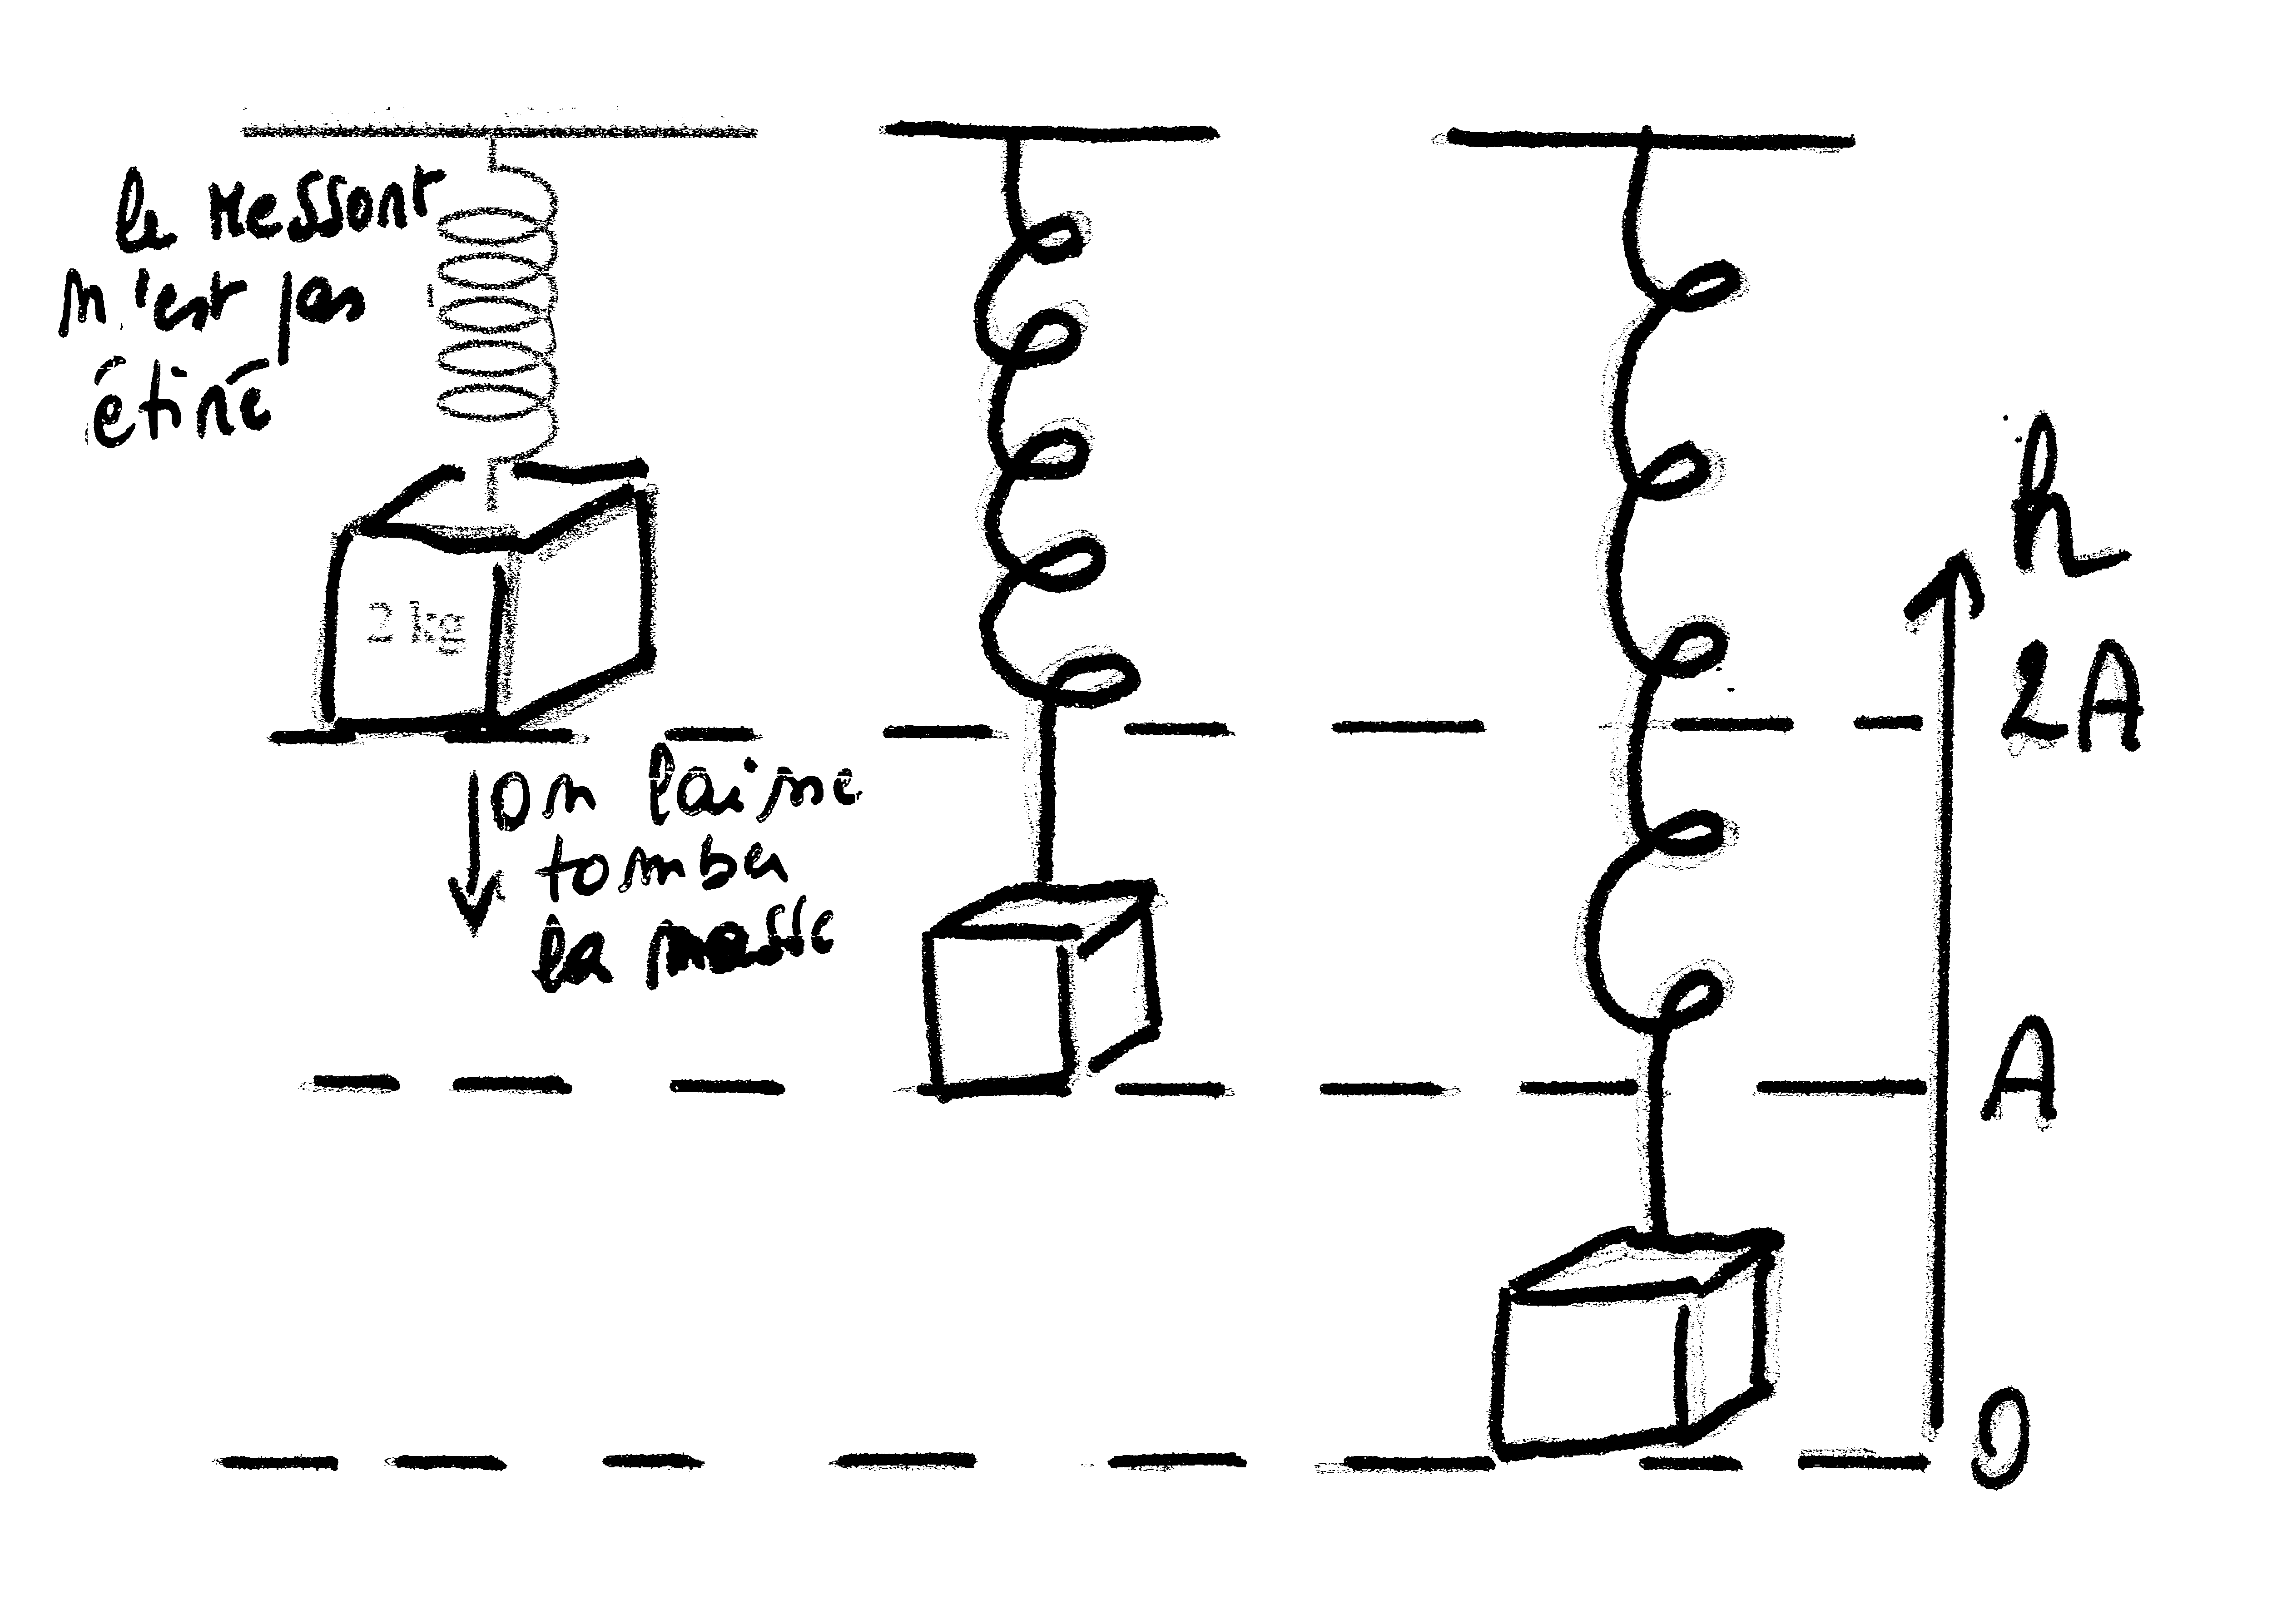 le ressort
n'est pas
étiré
2 kg
on laisse
tomber
la masse
h
2A
A
0